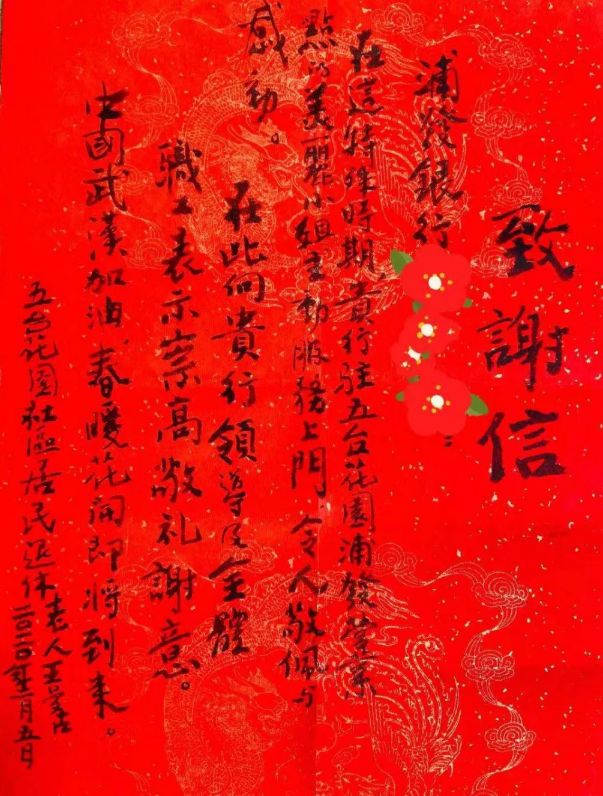 致謝信
浦發銀行
在這特殊時期，貴行駐五台花園浦發營業
點的美麗小組主動服務上門 令人敬佩与
感动。
在此向貴行領導及全體
職工表示崇高敬礼謝意。
中國武漢加油，春暖花開即將到来。
五台花園社區居民退休老人王
二〇二〇年二月五日